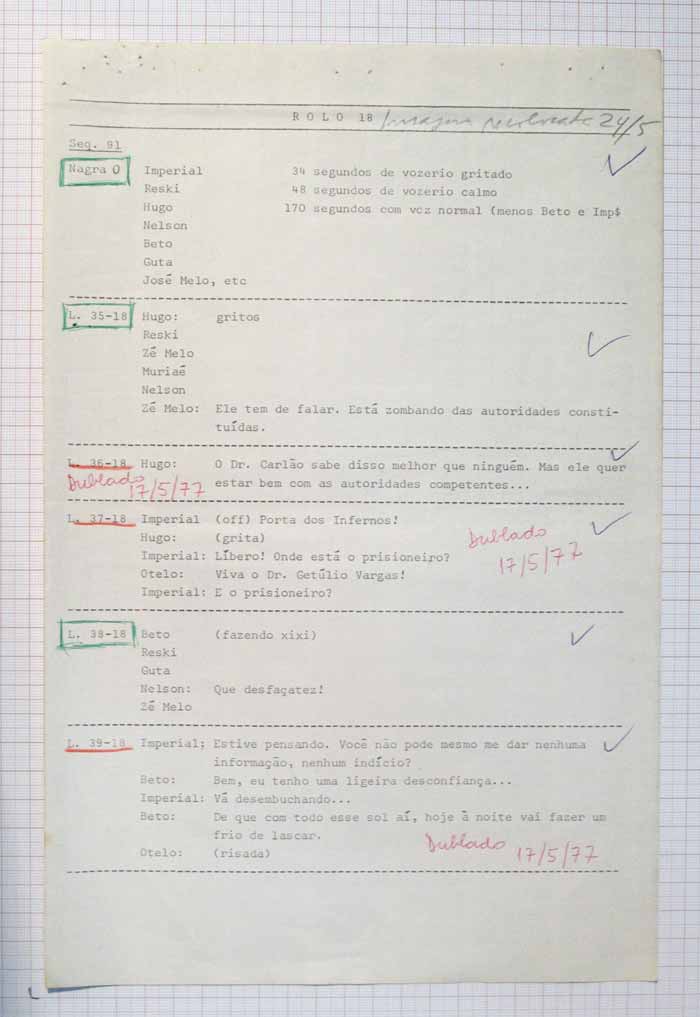 ROLO 18 Imagem 24/5
Seq. 91
Nagra O Imperial 34 segundos de vozerio gritado
Reski 48 segundos de vozerio calmo
Hugo 170 segundos com voz normal (menos Beto e Imp$
Nelson
Beto
Guta
José Melo, etc
L. 35-18 Hugo: gritos
Reski
Zé Melo
Muriaé
Nelson
Zé Melo: Ele tem de falar. Está zombando das autoridades consti-
tuídas.
L. 36-18 Hugo: O Dr. Carlão sabe disso melhor que ninguém. Mas ele quer
Dublado 17/5/77 estar bem com as autoridades competentes...
L. 37-18 Imperial (off) Porta dos Infernos!
Hugo: (grita) Dublado
Imperial: Líbero! Onde está o prisioneiro? 17/5/77
Otelo: Viva o Dr. Getúlio Vargas!
Imperial: E o prisioneiro?
L. 38-18 Beto (fazendo xixi)
Reski
Guta
Nelson: Que desfaçatez!
Zé Melo
L. 39-18 Imperial; Estive pensando. Você não pode mesmo me dar nenhuma
informação, nenhum indício?
Beto: Bem, eu tenho uma ligeira desconfiança...
Imperial: Vá desembuchando...
Beto: De que com todo esse sol aí, hoje à noite vai fazer um
frio de lascar.
Otelo: (risada) Dublado 17/5/77